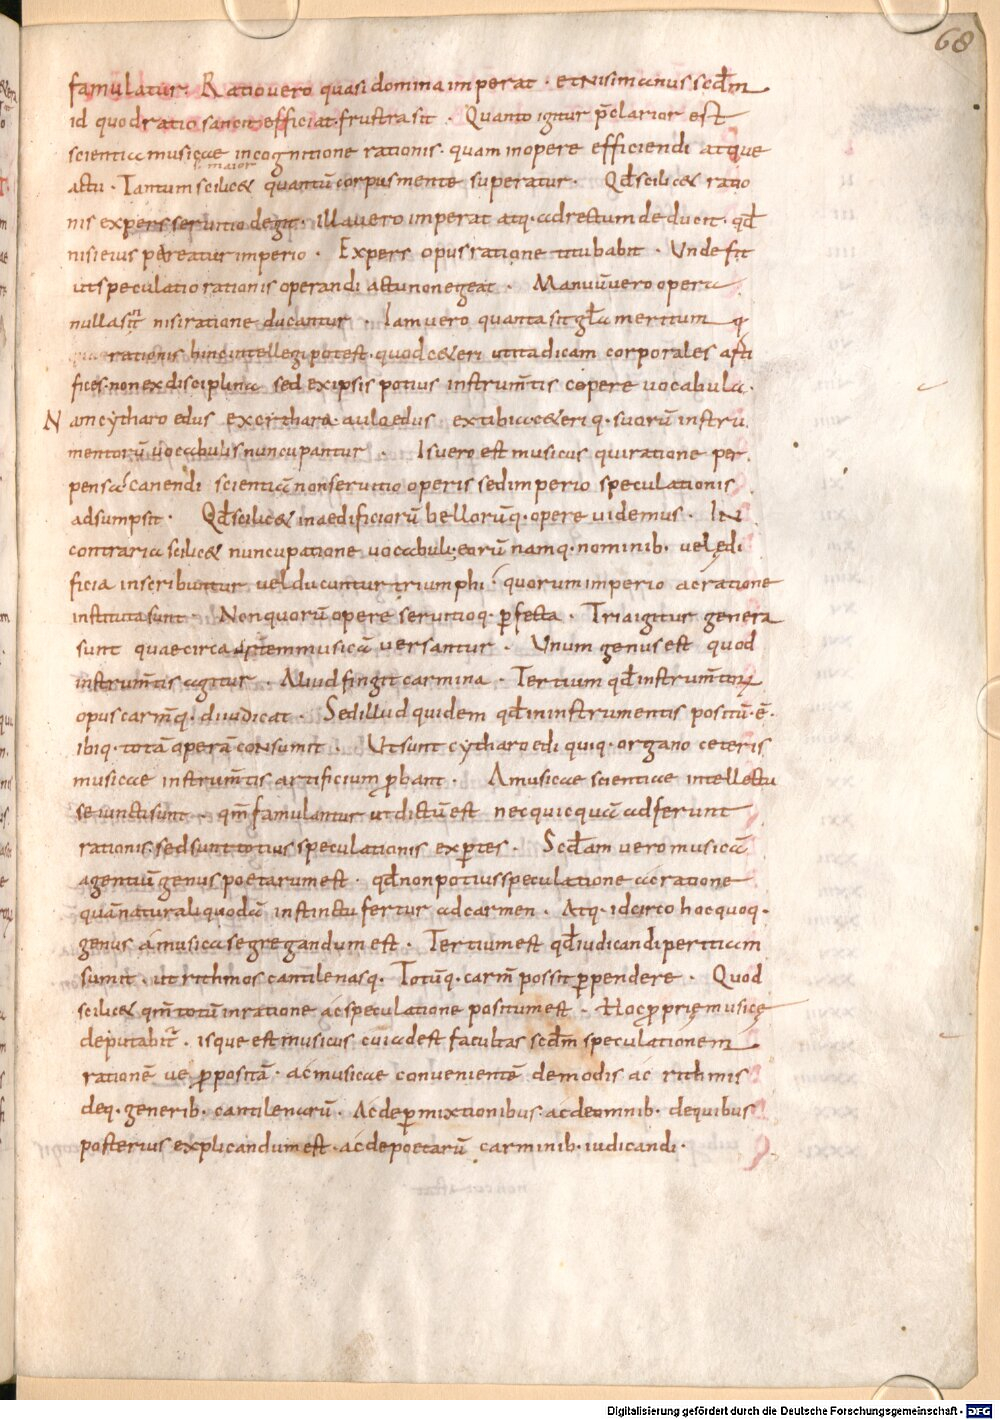 68
famulatur. Ratio vero quasi domina imperat. et nisi manus scdm
id quod ratio sancit efficiat. frustra sit. Quanto igitur p̄clarior est
scientia musicae in cognitione rationis. quam in opere efficiendi atque
s. maior
actu. Tantum scilic& quantū corpus mente superatur. Qđ scilic& ratio
nis expers servitio degit. illa vero imperat atq. ad rectum deducit. qđ
nisi eius pareatur imperio. Expers opus ratione titubabit. Unde fit
ut speculatio rationis operandi actu non egeat. Manuū vero opera
nulla sint nisi ratione ducantur. Iam vero quanta sit gl̄a meritum q
rationis hinc intellegi potest. quod c&eri ut ita dicam corporales arti
fices. non ex disciplina sed ex ipsis potius instrum̄tis cepere vocabula.
Nam cytharoedus ex cythara. auloedus. ex tibia c&eriq. suorū instru
mentorū vocabulis nuncupantur. Is vero est musicus qui ratione per
pensa canendi scientiā non servitio operis sed imperio speculationis
adsumpsit. Qđ scilic& in aedificiorū bellorūq. opere videmus. IN
contraria scilic& nuncupatione vocabuli. eorū namq. nominib. vel ędi
ficia inscribuntur vel ducuntur triumphi. quorum imperio ac ratione
instituta sunt. Non quorū opere servitioq. ꝑfecta. Tria igitur genera
sunt quae circa artem musicā versantur. Unum genus est quod
instrum̄tis agitur. Aliud fingit carmina. Tertium qđ instrum̄torꝝ
opus carm̄q. diiudicat. Sed illud quidem qđ in instrumentis positū .ē.
ibiq. totā operā consumit. Ut sunt cytharoedi quiq. organo ceteris
musicae instrum̄tis artificium ꝓbant. A musicae scientiae intellectu
seiuncti sunt. qm̄ famulantur ut dictū est nec quicquā adferunt
rationis. sed sunt totius speculationis expertes. Scđam vero musicā
agentiū genus poetarum est. qđ non potius speculatione ac ratione
quā naturali quodā instinctu fertur ad carmen. Atq. idcirco hoc quoq.
genus a musica segregandum est. Tertium est qđ iudicandi peritiam
sumit. ut rithmos cantilenasq. Totūq. carm̄ possit ꝑpendere. Quod
scilic& qm̄ totū in ratione ac speculatione positum est. Hoc ꝓprię musicę
deputabit̄. isque est musicus cui adest facultas scdm speculationem
rationē ve ꝓpositā. ac musicae convenientē de modis ac rithmis
deq. generib. cantilenarū. Ac de ꝑmixtionibus. ac de omnib. de quibus
posterius explicandum est. ac de poetarū carminib. iudicandi.
Digitalisierung gefördert durch die Deutsche Forschungsgemeinschaft - DFG